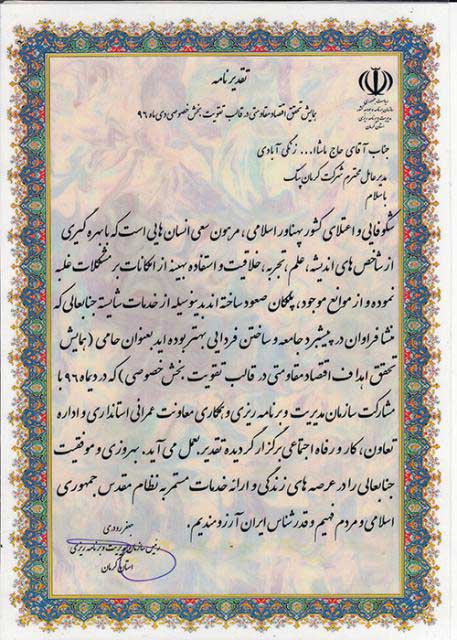 تقدیرنامه
همایش تحقق اقتصاد مقاومتی در قالب تقویت بخش خصوصی دی ماه ۹۶
ریاست جمهوری
سازمان برنامه و بودجه کشور
مدیریت و برنامه ریزی
استان کرمان
جناب آقای حاج ماشاا... زنگی آبادی
مدیرعامل محترم شرکت کرمان پتک
با سلام
شکوفایی و اعتلای کشور پهناور اسلامی، مرهون سعی انسان هایی است که با بهره گیری
از شاخص های اندیشه، علم، تجربه، خلاقیت و استفاده بهینه از امکانات بر مشکلات غلبه
نموده و از موانع موجود، پلکان صعود ساخته اند بدینوسیله از خدمات شایسته جنابعالی که
منشا فراوان در پیشبرد جامعه و ساختن فردایی بهتر بوده اید بعنوان حامی (همایش
تحقق اهداف اقتصاد مقاومتی در قالب تقویت بخش خصوصی) که در دیماه ۹۶ با
مشارکت سازمان مدیریت و برنامه ریزی و همکاری معاونت عمرانی استانداری و اداره
تعاون، کار و رفاه اجتماعی برگزار گردیده تقدیر بعمل می آید. بهروزی و موفقیت
جنابعالی را در عرصه های زندگی و ارائه خدمات مستمر به نظام مقدس جمهوری
اسلامی و مردم فهیم و قدرشناس ایران آرزومندیم.
جعفر رودری
رئیس سازمان مدیریت و برنامه ریزی
استان کرمان